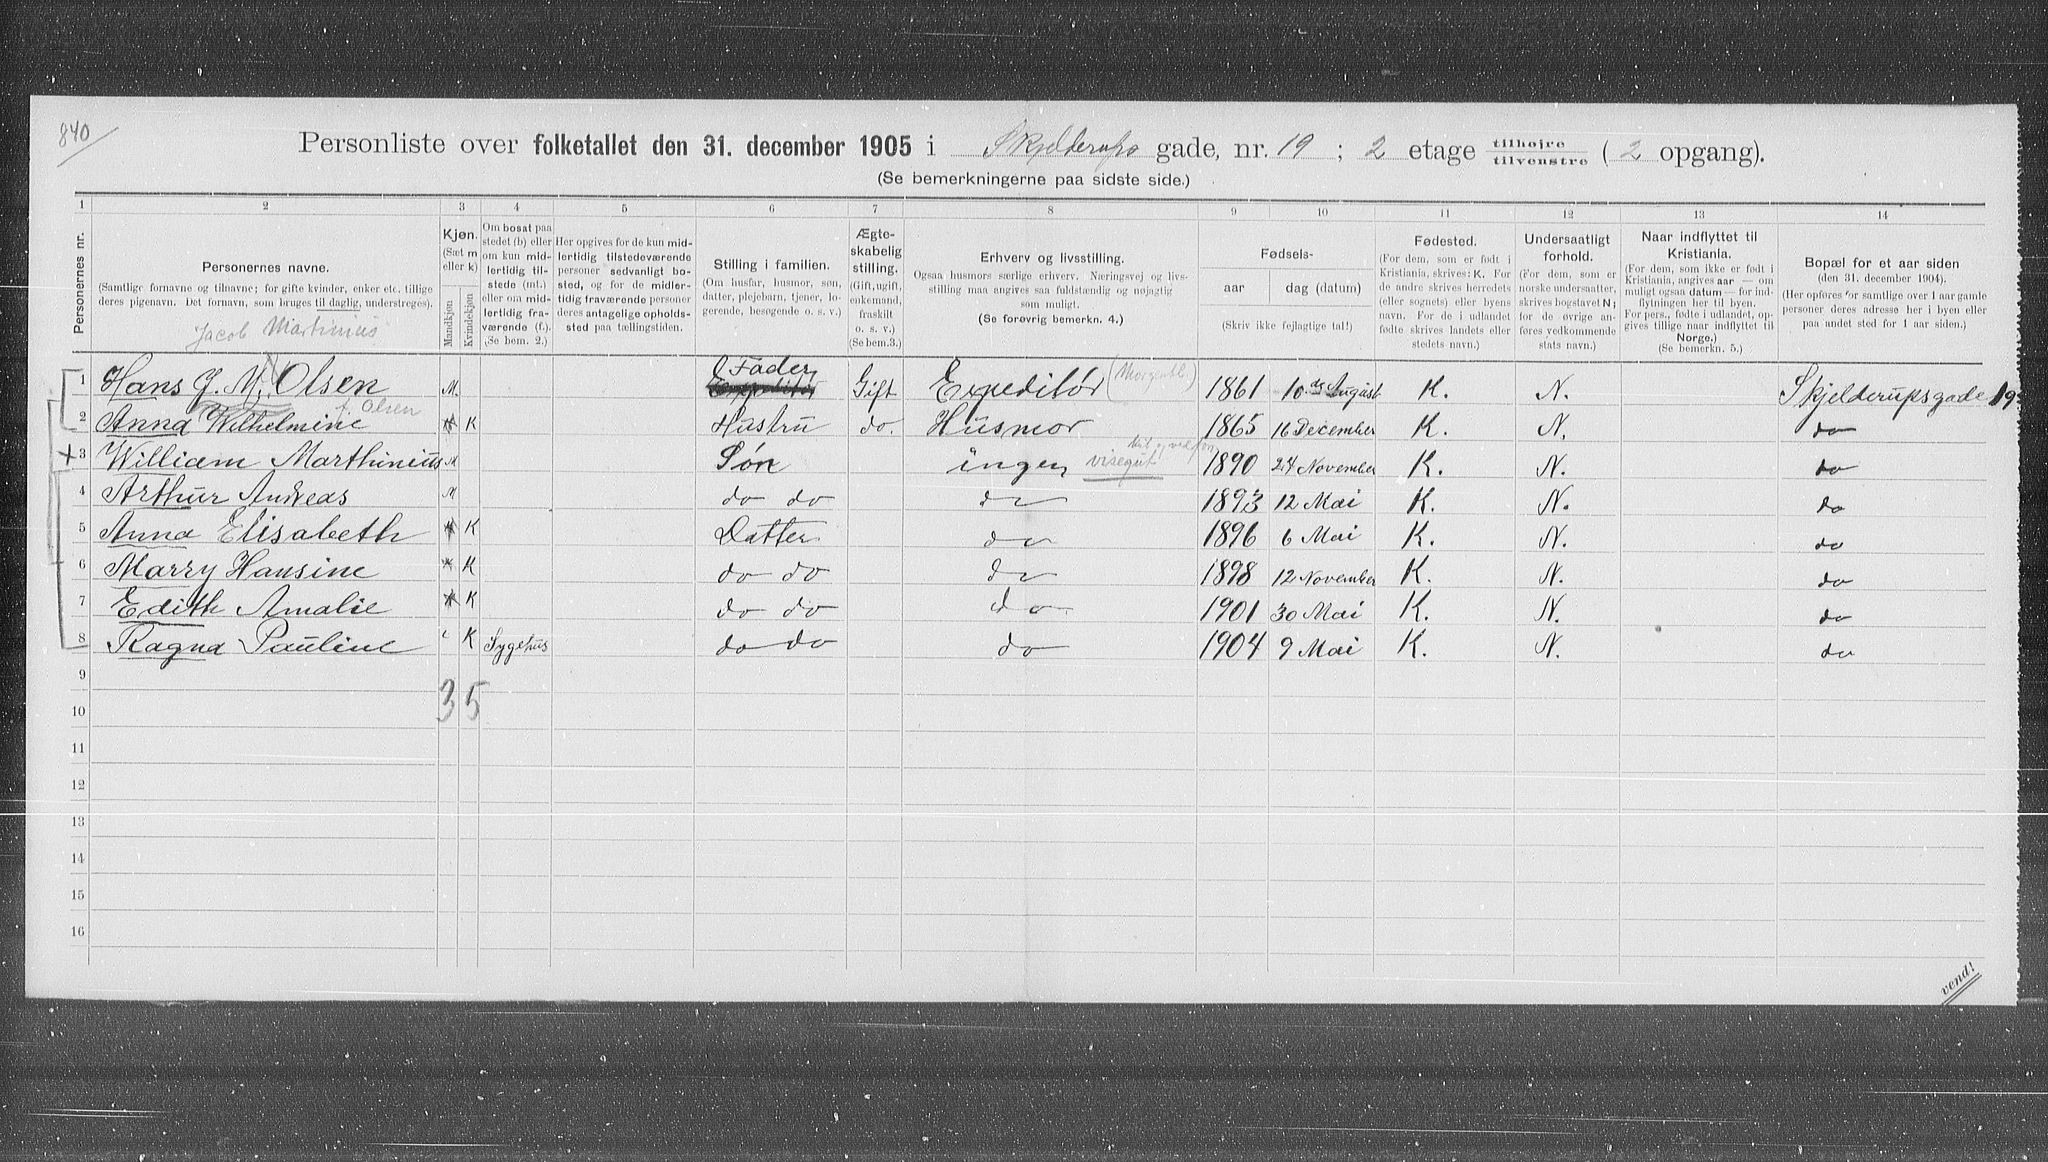 840
Personliste over folketallet den 31. december 1905 i Skjelderups gade, nr. 19 ; 2 etage tilhøjre tilvenstre ( 2 opgang).
(Se bemerkningerne paa sidste side.)
1 2 3 4 5 6 7 8 9 10 11 12 13 14
Personernes nr.
Personernes navne.
(Samtlige fornavne og tilnavne; for gifte kvinder, enker etc. tillige deres pigenavn. Det fornavn, som bruges til daglig, understreges).
Kjøn.
(Sæt m eller k)
Mandkjøn
Kvindekjøn
Om bosat paa stedet (b) eller om kun midlertidig tilstede (mt.) eller om midlertidig fraværende (f.). (Se bem. 2.)
Her opgives for de kun midlertidig tilstedeværende personer sedvanligt bosted, og for de midlertidig fraværende personer deres antagelige opholdssted paa tællingstiden.
Stilling i familien.
(Om husfar, husmor, søn, datter, plejebarn, tjener, logerende, besøgende o. s. v.)
Ægteskabelig stilling.
(Gift, ugift, enkemand, fraskilt o. s. v.) (Se bem.3.)
Erhverv og livsstilling.
Ogsaa husmors særlige erhverv. Næringsvej og livsstilling maa angives saa fuldstændig og nøjagtig som muligt.
(Se forøvrig bemerkn. 4.)
Fødsels-
aar dag (datum)
(Skriv ikke fejlagtige tal!)
Fødested.
(For dem, som er født i Kristiania, skrives: K. For de andre skrives herredets (eller sognets) eller byens navn. For de i udlandet fødte skrives landets eller stedets navn.)
Undersaatligt forhold.
(For dem, som er norske undersaatter, skrives bogstavet N; for de øvrige anføres vedkommende stats navn.)
Naar indflyttet til Kristiania.
(For dem, som ikke er født i Kristiania, angives aar — om muligt ogsaa datum — for indflytningen her til byen. For pers., fødte i udlandet, opgives tillige naar indflyttet til Norge.) (Se bemerkn. 5.)
Bopæl for et aar siden
(den 31. december 1904).
(Her opføres for samtlige over 1 aar gamle personer deres adresse her i byen eller paa andet sted for 1 aar siden.)
Jacob Martinius
1 Hans J. M. Olsen M. Fader Gift Expeditør (Morgenbl.) 1861 10de August K. N. Skjelderupsgade 19
f. Olsen
2 Anna Wilhelmine K Hustru do. Husmor 1865 16 December K. N. do
3 William Marthinius M Søn ingen visegut 1890 24 November K. N. do
4 Arthur Andreas M do do do 1893 12 Mai K. N. do
5 Anna Elisabeth K Datter do 1896 6 Mai K. N. do
6 Marry Hansine K do do do 1898 12 November K. N. do
7 Edith Amalie K do do do 1901 30 Mai K. N. do
8 Ragna Pauline K Sygehus do do do 1904 9 Mai K. N. do
9
3 5
10
11
12
13
14
15
16
vend!